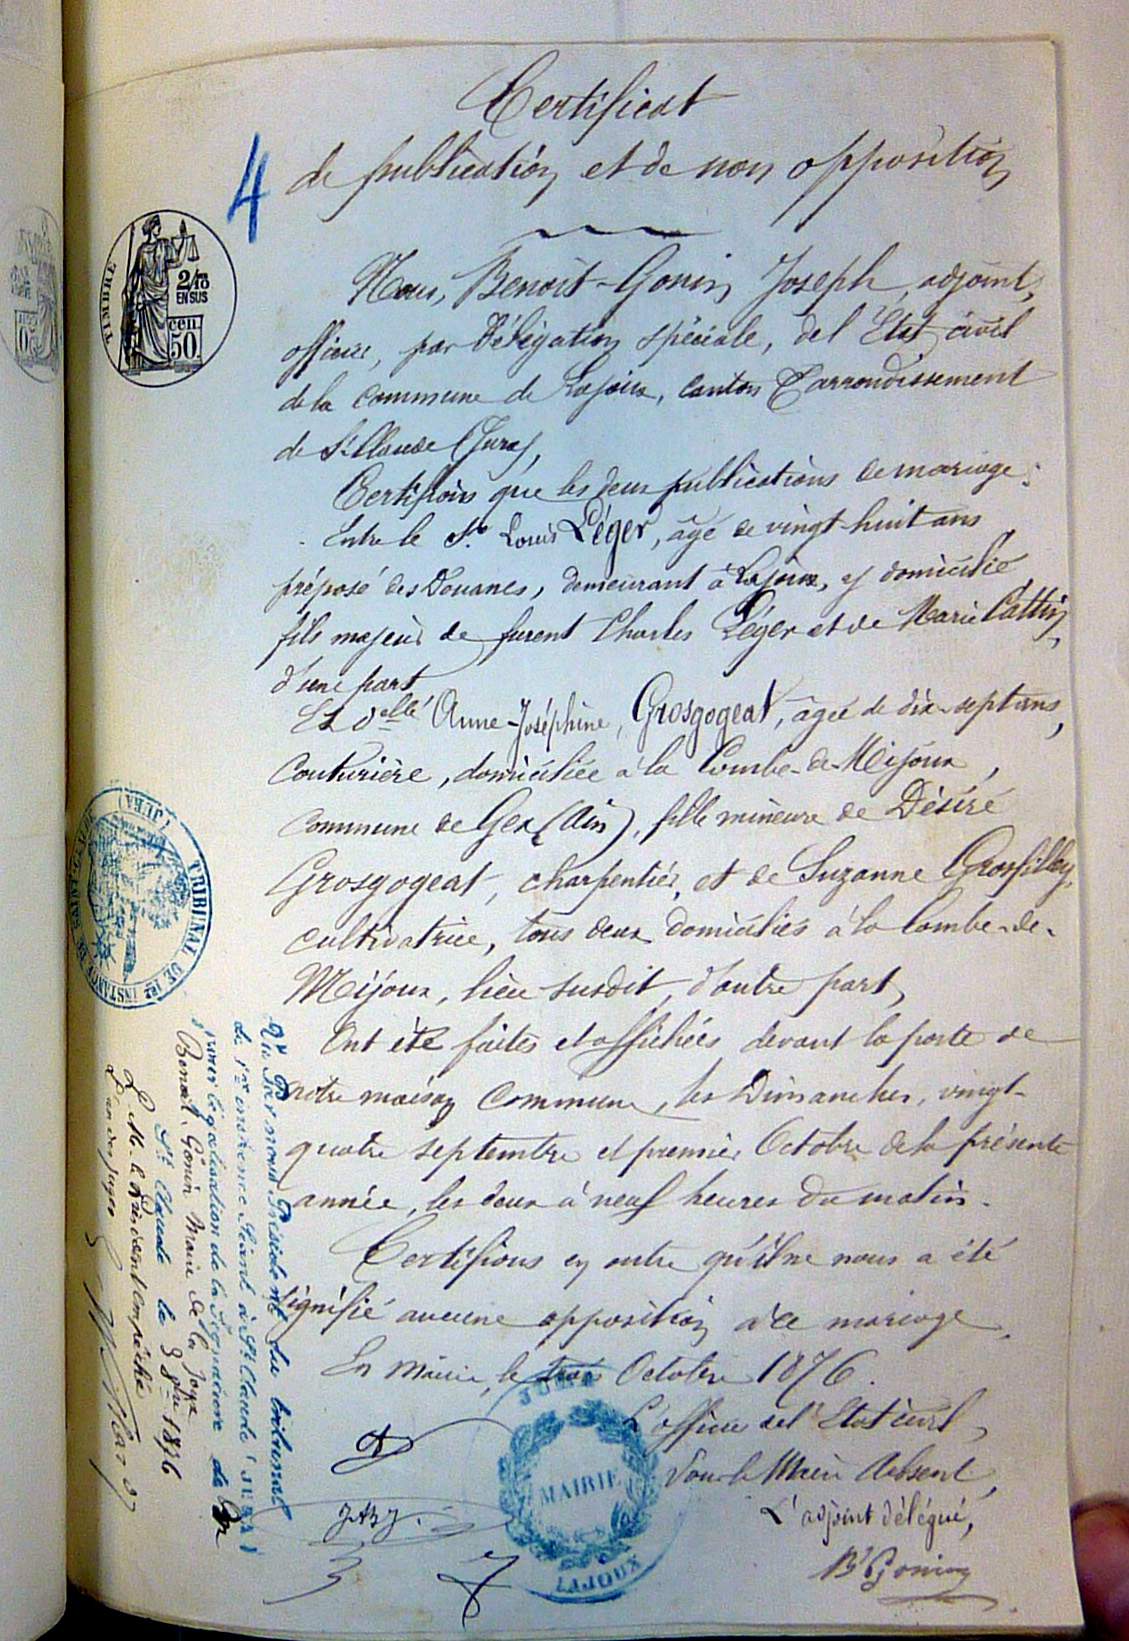 Certificat
de publication et de non opposition
4
TIMBRE
2/10
EN SUS
cen
50.
Nous, Benoit-Gonin Joseph, adjoint,
officier, par délégation spéciale, de l'Etat civil
de la commune de Lajoux, canton & arrondissement
de St Claude (Jura),
Certifions que les deux publications de mariage:
Entre le Sr. Louis Léger, âgé de vingt-huit ans
préposé des Douanes, demeurant à Lajoux, y domicilié
fils majeur de furent Charles Léger et de Marie Cattin,
d'une part
Et delle Anne-Joséphine, Grosgogeat, âgée de dix-sept ans,
Couturière, domiciliée à la Combe-de-Mijoux,
Commune de Gex (Ain), fille mineure de Désiré
Grosgogeat, charpentier, et de Suzanne Grosfilley,
cultivatrice, tous deux domiciliés à la Combe-de-
Mijoux, lieu susdit, d'autre part,
Ont été faites et affichées devant la porte de
notre maison Commune, les Dimanches, vingt-
quatre septembre et premier Octobre de la présente
année, les deux à neuf heures du matin.
Certifions en outre qu'il ne nous a été
signifié aucune opposition à ce mariage.
En Mairie, le trois Octobre 1876.
L'officier de l'Etat civil,
Pour le Maire Absent,
L'adjoint délégué,
Bt Gonin
JURA
MAIRIE
LAJOUX
TRIBUNAL DE 1re INSTANCE DE SAINT-CLAUDE (JURA)
Vu par nous Président du tribunal
de 1re instance séant à St Claude (Jura)
pour légalisation de la signature de Mr
Benoit Gonin Maire de la Joux
St Claude le 3 8bre 1876
P. M. le Président empêché
L'un des Juges